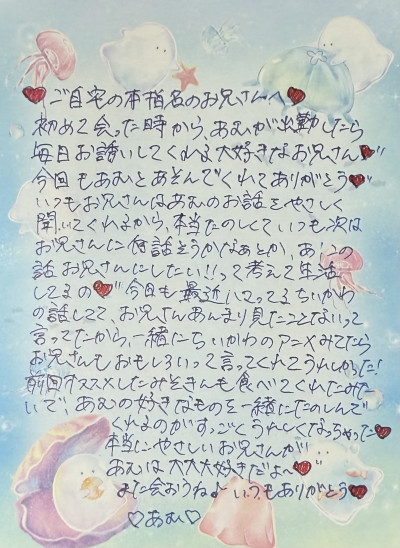 ♥ご自宅の本指名のお兄さんへ♥
初めて会った時から、あむが出勤したら
毎日お誘いしてくれる大好きなお兄さん♥
今回もあむとあそんでくれてありがとう♥
いつもお兄さんはあむのお話をやさしく
聞いてくれるから、本当たのしくていつも次は
お兄さんに何話そうかなあとか、あ!この
話お兄さんにしたい!!って考えて生活
してるの♥今日も最近ハマってるちいかわ
の話してて、お兄さんあんまり見たことないって
言ってたから、一緒にちいかわのアニメみてたら
お兄さんもおもしろいって言ってくれてうれしかった!
前回オススメしたみそきんも食べてくれたみた
いで、あむの好きなものを一緒にたのしんで
くれるのがすっごくうれしくなっちゃった♥
本当にやさしいお兄さんが
あむは大大大好きだよ〜♥
また会おうねよ いつもありがとう♥
♡あむ♡